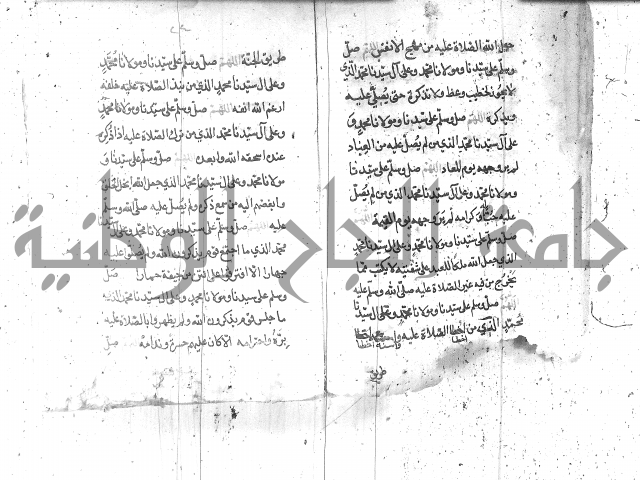 جعل الله الصلاة عليه من مهج الأنفس اللهم صل
وسلم على سيدنا ومولانا محمد وعلى آل سيدنا محمد الذي
لا يجوز لخطيب وعظ ولا تذكرة حتى يصلى عليه
ويذكره اللهم صل وسلم على سيدنا ومولانا محمد و
على آل سيدنا محمد الذي من لم يصل عليه من العباد
لم ير وجهه يوم المعاد اللهم صل وسلم على سيدنا
ومولانا محمد وعلى آل سيدنا محمد الذي من لم يصل
عليه كرامه لم ير وجهه يوم القيمة
صل وسلم على سيدنا ومولانا محمد وعلى آل سيدنا محمد
الذي جعل الله ملكا للعبد على شفتيه لا يكتب مما
يخرج من فيه غير الصلاة عليه صلى الله وسلم عليه
اللهم صل وسلم على سيدنا ومولانا محمد وعلى آل سيدنا
محمد الذي من اخطا الصلاة عليه
طريق
طريق الجنة اللهم صل وسلم على سيدنا ومولانا محمد
وعلى آل سيدنا محمد الذي من نبذ الصلاة عليه خلفه
ارغم الله انفه اللهم صل وسلم على سيدنا ومولانا محمد
وعلى آل سيدنا محمد الذي من ترك الصلاة عليه اذا ذكر
عنده اسحقه الله وابعده اللهم صل وسلم على سيدنا و
مولانا محمد وعلى آل سيدنا محمد الذي جعل الله ابخل الخلق
وابغضهم اليه من سمع ذكره ولم يصل عليه صلى الله وسلم
عليه اللهم صل وسلم على سيدنا ومولانا محمد وعلى آل سيدنا
محمد الذي ما اجتمع قوم يذكرون الله ولم يصلوا عليه
جهارا الا افترقوا على انتن من جيفة حمارا اللهم صل
وسلم على سيدنا ومولانا محمد وعلى آل سيدنا محمد الذي
ما جلس قوم يذكرون الله ولم يظهروا بالصلاة عليه
بره واحترامه الا كان عليهم حسرة وندامه صل
جامعة النجاح الوطنية